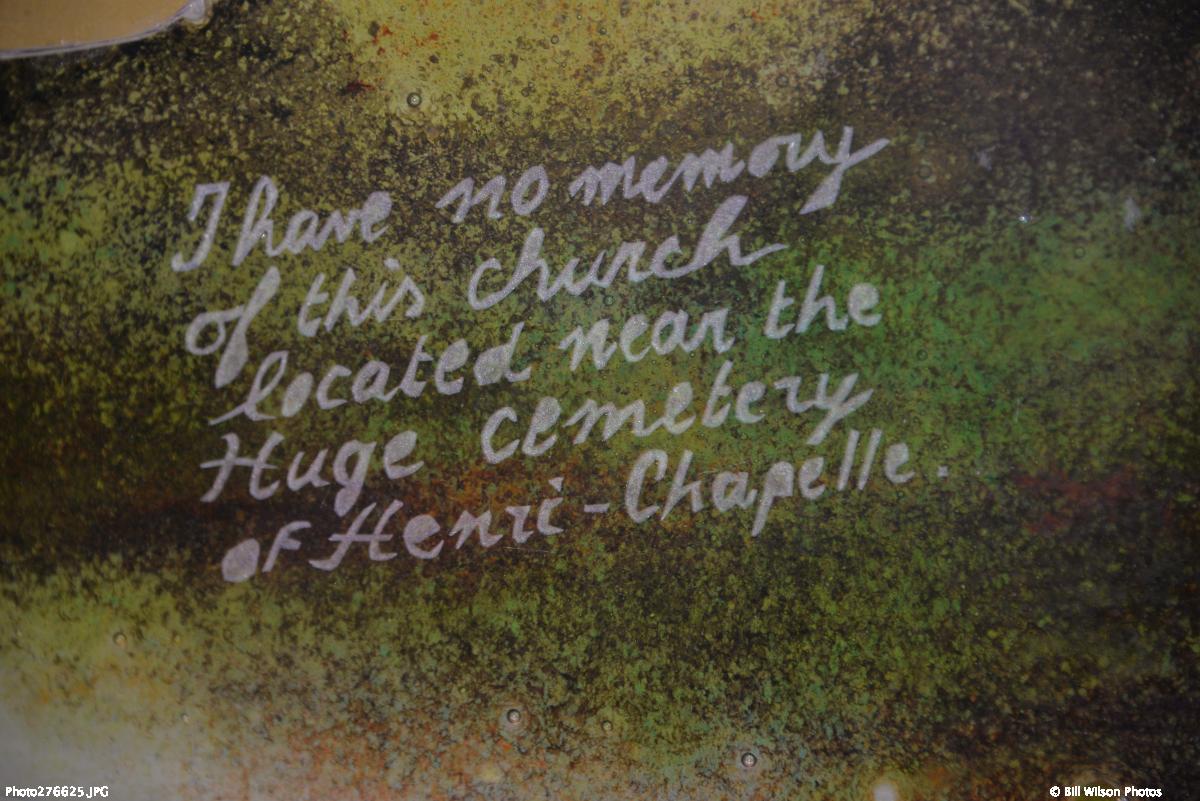 I have no memory
of this church
located near the
Huge cemetery
of Henri-Chapelle.
Photo276625.JPG
© Bill Wilson Photos